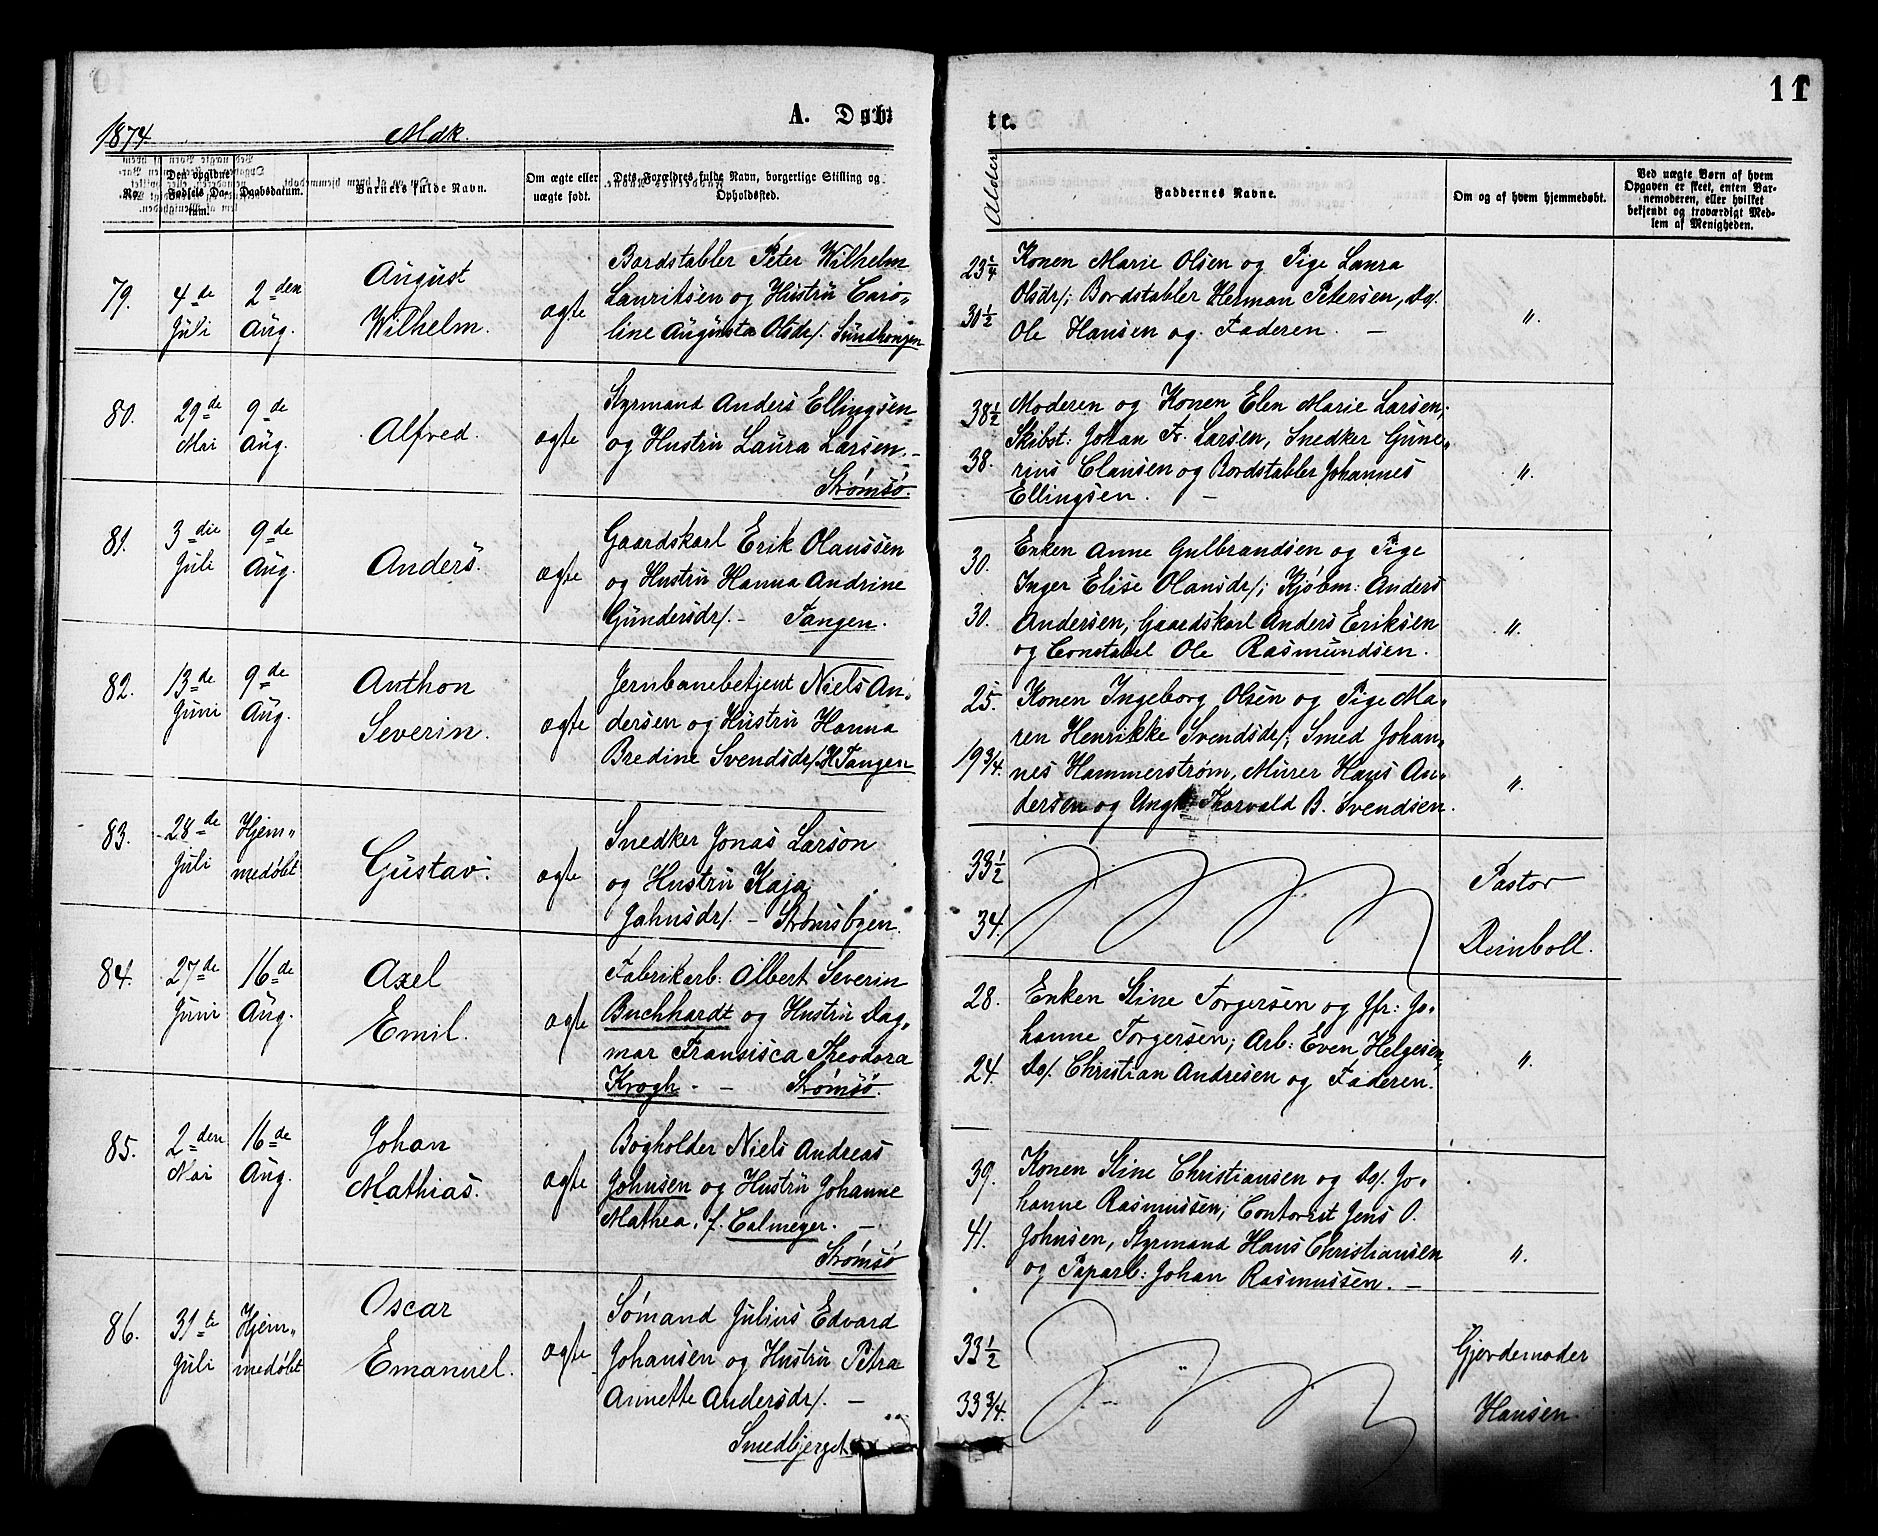 11
1874. Mdk. A. Døbte.
No.
Den opgivne Fødsels Datum.
Daabsdatum.
Barnets fulde Navn.
Om ægte eller uægte født.
Dets Forældres fulde Navn, borgerlige Stilling og Opholdsted.
Alder
Faddernes Navne.
Om og af hvem hjemmedøbt.
Ved uægte Børn af hvem Opgaven er skeet, enten Barnemoderen, eller hvilket bekjendt og troværdigt Medlem af Menigheden.
79. 4de Juli
2den Aug.
August
Wilhelm.
ægte
Bordstabler Peter Wilhelm
Lauritsen og Hustru Caro-
line Augusta Olsdr/. Sundhougen
23 1/4
30 1/2
Konen Marie Olsen og Pige Laura
Olsdr/; Bordstabler Herman Petersen, do/.
Ole Hansen og Faderen. –
"
80. 29de Mai
9de Aug.
Alfred.
ægte
Styrmand Anders Ellingsen
og Hustru Laura Larsen. –
Strømsø.
38 1/2
38.
Moderen og Konen Elen Marie Larsen;
Skibst: Johan Fr. Larsen, Snedker Gune-
rius Clausen og Bordstabler Johannes
Ellingsen. –
"
81. 3die Juli
9de Aug.
Anders.
ægte
Gaardskarl Erik Olaussen
og Hustru Hanna Andrine
Gundersdr/. – Tangen.
30.
30.
Enken Anne Gulbrandsen og Pige
Inger Elise Olausdr/; Kjøbm: Anders
Andersen, Gaardskarl Anders Eriksen
og Constabel Ole Rasmundsen.
"
82. 13de Juni
9de Aug.
Anthon
Severin.
ægte
Jernbanebetjent Niels An-
dersen og Hustru Hanna
Bredine Svendsdr/. H. Tangen
25.
19 3/4.
Konen Ingeborg Olsen og Pige Ma-
ren Henrikke Svendsdr/; Smed Johan-
nes Hammerstrøm, Murer Hans An-
dersen og Ungk. Thorvald B. Svendsen.
"
83. 28de Juli
Hjem-
medøbt
Gustav.
ægte
Snedker Jonas Larson
og Hustru Kaja
Jahnsdr/. – Strømsbyen.
33 1/2
34.
Pastor
Reinboll.
84. 27de Juni
16de Aug.
Axel
Emil.
ægte
Fabrikarb: Albert Severin
Buchhardt og Hustru Dag-
mar Fransisca Theodora
Krogh. – Strømsø.
28.
24.
Enken Stine Torgersen og Jfr: Jo-
hanne Torgersen; Arb: Even Helgesen,
do/. Christian Andresen og Faderen.
"
85. 2den Mai
16de Aug.
Johan
Mathias.
ægte
Bogholder Niels Andreas
Johnsen og Hustru Johanne
Mathea, f. Calmeyer. –
Strømsø
39.
41.
Konen Stine Christiansen og do/. Jo-
hanne Rasmussen; Contorist Jens O.
Johnsen, Styrmand Hans Christiansen
og Paparb: Johan Rasmussen. –
"
86. 31te Juli
Hjem-
medøbt
Oscar
Emanuel.
ægte
Sømand Julius Edvard
Johansen og Hustru Petra
Annette Andersdr/. –
Smedbjerget
33 1/2
33 3/4.
Gjordemoder
Hansen.